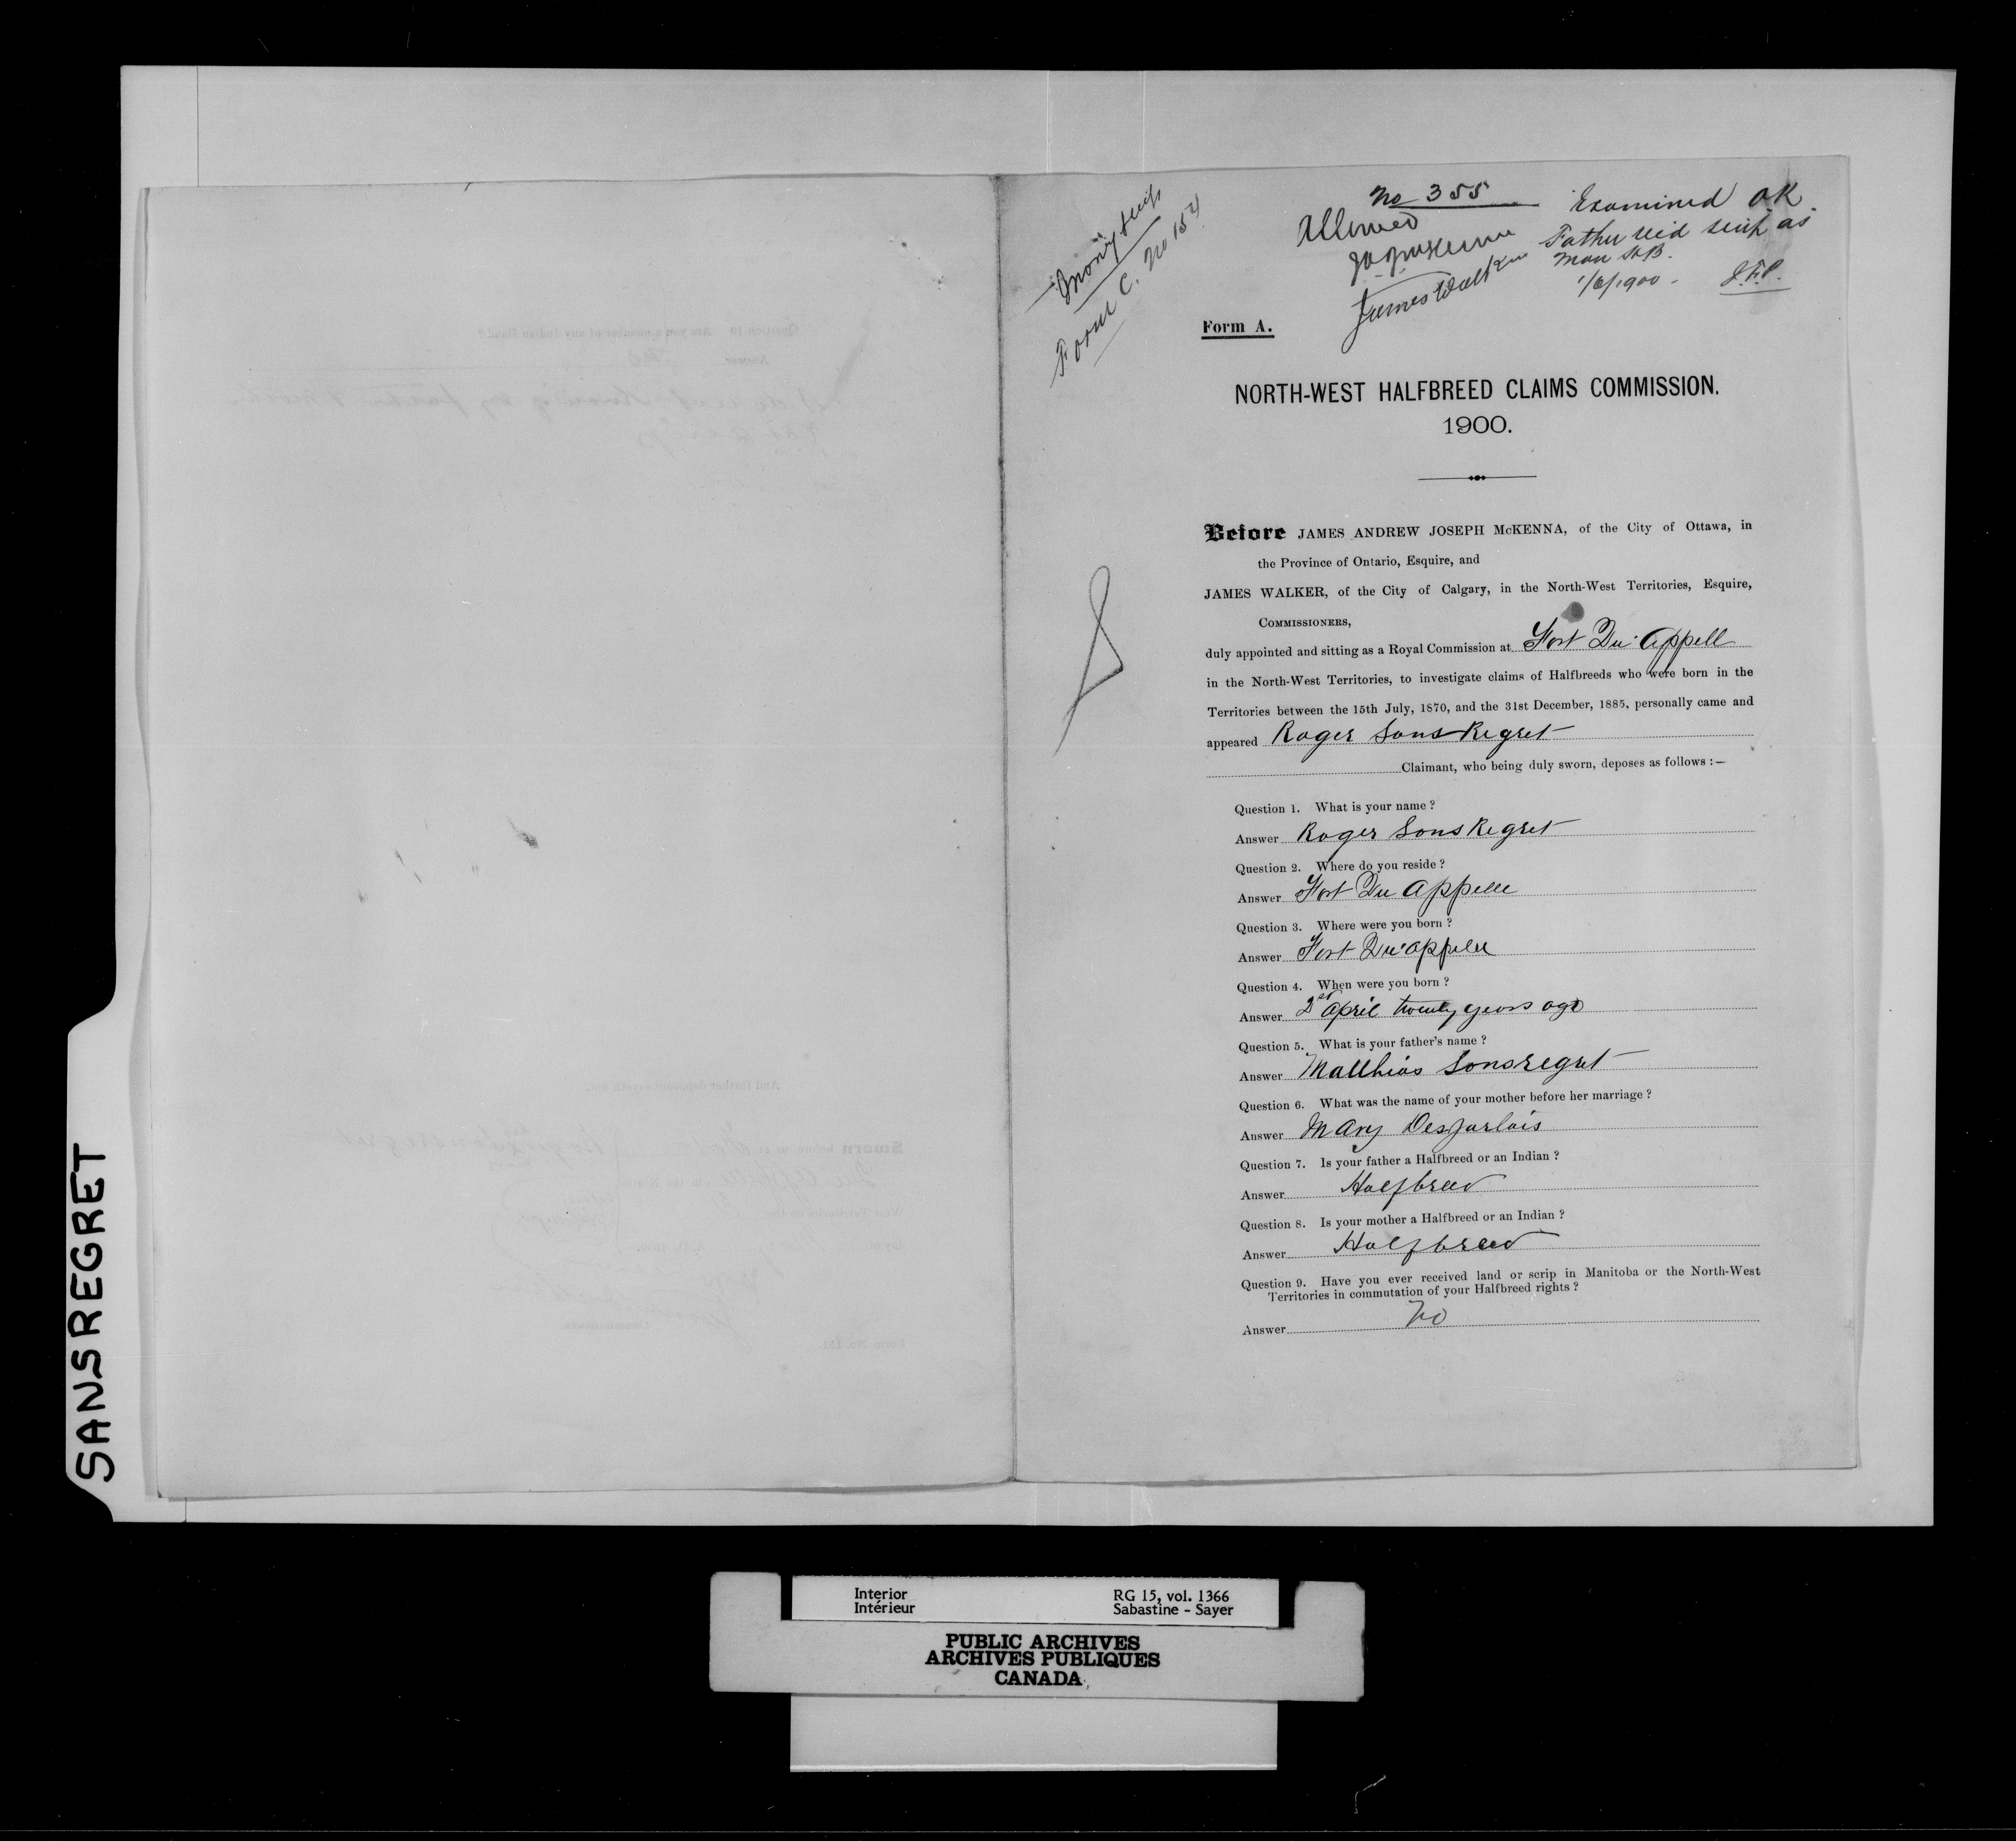 SANSREGRET
Money Scrip
Form C. No 154
No 355
Allowed
James Walker
Examined OK.
Father rec'd scrip as
Man HB.
1/6/1900 - J.F.P.
Form A.
NORTH-WEST HALFBREED CLAIMS COMMISSION.
1900.
Before JAMES ANDREW JOSEPH McKENNA, of the City of Ottawa, in
the Province of Ontario, Esquire, and
JAMES WALKER, of the City of Calgary, in the North-West Territories, Esquire,
COMMISSIONERS,
duly appointed and sitting as a Royal Commission at Fort Qu'Appell
in the North-West Territories, to investigate claims of Halfbreeds who were born in the
Territories between the 15th July, 1870, and the 31st December, 1885, personally came and
appeared Roger Sans Regret
Claimant, who being duly sworn, deposes as follows :—
Question 1. What is your name ?
Answer Roger Sans Regret
Question 2. Where do you reside ?
Answer Fort Qu Appelle
Question 3. Where were you born ?
Answer Fort Qu'Appelle
Question 4. When were you born ?
Answer April twenty years ago
Question 5. What is your father's name ?
Answer Matthias Sansregret
Question 6. What was the name of your mother before her marriage ?
Answer Mary Desjarlais
Question 7. Is your father a Halfbreed or an Indian ?
Answer Halfbreed
Question 8. Is your mother a Halfbreed or an Indian ?
Answer Halfbreed
Question 9. Have you ever received land or scrip in Manitoba or the North-West
Territories in commutation of your Halfbreed rights ?
Answer No
Interior RG 15, vol. 1366
Intérieur Sabastine - Sayer
PUBLIC ARCHIVES
ARCHIVES PUBLIQUES
CANADA